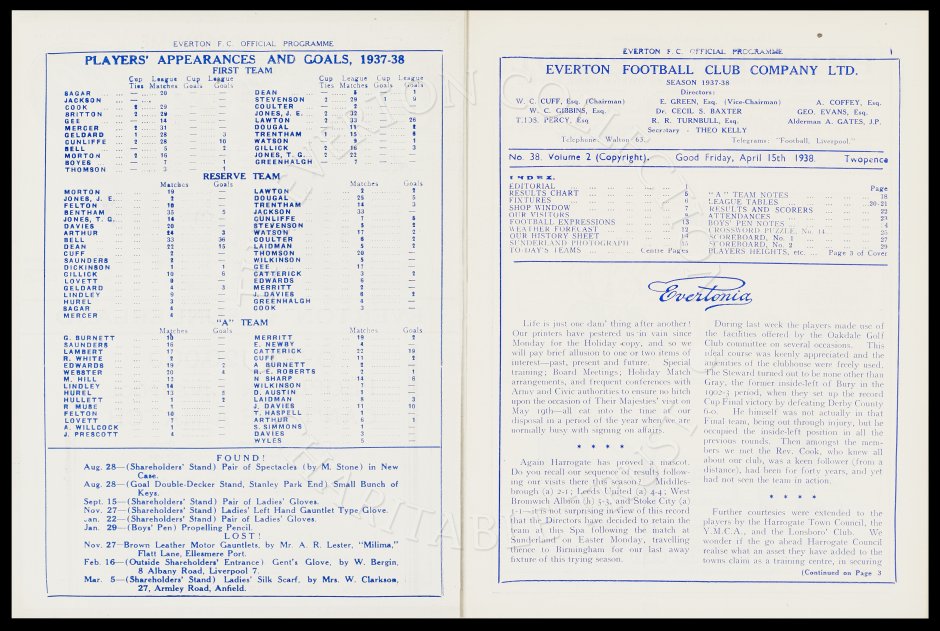 EVERTON F.C. OFFICIAL PROGRAMME
PLAYERS' APPEARANCES AND GOALS, 1937-38
FIRST TEAM
Cup Ties League Matches Cup Goals League Goals
SAGAR ... — 28 — —
JACKSON
COOK ... 2 29 — —
BRITTON 2 29 — —
GEE 14 — —
MERCER 2 31 — —
GELDARD 1 28 — 3
CUNLIFFE 2 28 10
BELL 5 2
MORTON 2 16 — —
BOYES 7 1
THOMSON 3
Cup Ties League Matches Cup Goals League Goals
DEAN 5 — —
STEVENSON 2 29 1 9
COULTER 2 —
JONES, J. E. 2 32 — —
LAWTON 2 33 26
DOUGAL 11 2
TRENTHAM 1 15 8
WATSON 9 — 1
GILLICK 2 16 3
JONES, T. G. 2 22 — —
GREENHALGH 7 — —
RESERVE TEAM
Matches Goals
MORTON 19 —
JONES, J. E. 2 —
FELTON 10 —
BENTHAM 35 5
JONES, T. G. 14 —
DAVIES 28 —
ARTHUR 26 3
BELL 33 36
DEAN 22 15
CUFF 2 —
SAUNDERS 2 —
DICKINSON 1 1
GILLICK 10 6
LOVETT —
GELDARD 4 3
LINDLEY 9 —
HUREL 3 —
SAGAR 4 —
MERCER 4 —
Matches Goals
LAWTON 2 2
DOUGAL 25 5
TRENTHAM 14 3
JACKSON 33 —
CUNLIFFE 7 5
STEVENSON 5 2
WATSON 17 2
COULTER 6 2
LAIDMAN 5 2
THOMSON 20 —
WILKINSON 5 —
GEE 17 —
CATTERICK 3 2
EDWARDS 6 —
MERRITT 2 —
J. DAVIES 6 2
GREENHALGH 4 —
COOK 3 —
"A" TEAM
Matches Goals
G. BURNETT —
SAUNDERS 16 —
LAMBERT 17 —
R. WHITE 2 —
EDWARDS 19 2
WEBSTER 20 4
M. HILL 12 —
LINDLEY 14 —
HUREL 13 5
HULLETT 1 2
R MUSE 1 —
FELTON 10 —
LOVETT 7 —
A. WILLCOCK 1 —
J. PRESCOTT 4 —
Matches Goals
MERRITT 19 2
E. NEWBY 4 —
CATTERICK 22 19
CUFF 11 2
A BURNETT 2 —
R. E. ROBERTS 2 1
N SHARP 14 6
WILKINSON 1 —
D. AUSTIN 1 —
LAIDMAN 5 3
J. DAVIES 11 10
T. HASPELL 1 —
ARTHUR 6 1
S. SIMMONS 1 —
DAVIES 3 —
WYLES 5 —
FOUND!
Aug. 28—(Shareholders' Stand) Pair of Spectacles (by M. Stone) in New
Case.
Aug. 28—(Goal Double-Decker Stand, Stanley Park End) Small Bunch of
Keys.
Sept. 15—(Shareholders' Stand) Pair of Ladies' Gloves.
Nov. 27—(Shareholders' Stand) Ladies' Left Hand Gauntlet Type Glove.
Jan. 22—(Shareholders' Stand) Pair of Ladies' Gloves.
Jan. 29—(Boys' Pen) Propelling Pencil.
LOST!
Nov. 27—Brown Leather Motor Gauntlets, by Mr. A. R. Lester, "Milima,"
Flatt Lane, Ellesmere Port.
Feb. 16—(Outside Shareholders' Entrance) Gent's Glove, by W. Bergin,
8 Albany Road, Liverpool 7.
Mar. 5—(Shareholders' Stand) Ladies' Silk Scarf, by Mrs. W. Clarkson,
27, Armley Road, Anfield.
EVERTON F.C. OFFICIAL PROGRAMME 1
EVERTON FOOTBALL CLUB COMPANY LTD.
SEASON 1937-38
Directors:
W. C. CUFF, Esq. (Chairman) E. GREEN, Esq. (Vice-Chairman) A. COFFEY, Esq.
W. C. GIBBINS, Esq. Dr. CECIL S. BAXTER GEO. EVANS, Esq.
T. PERCY, Esq. R. R. TURNBULL, Esq. Alderman A. GATES, J.P.
Secretary - THEO KELLY
Telephone, Walton 63. Telegrams: "Football, Liverpool."
No. 38. Volume 2 (Copyright). Good Friday, April 15th 1938. Twopence
INDEX.
EDITORIAL 1
RESULTS CHART
FIXTURES 6
SHOP WINDOW 7
OUR VISITORS
FOOTBALL EXPRESSIONS 13
WEATHER FORECAST 12
OUR HISTORY SHEET 14
SUNDERLAND PHOTOGRAPH 15
TO-DAY'S TEAMS Centre Pages
Page
"A" TEAM NOTES 18
LEAGUE TABLES 20-21
RESULTS AND SCORERS 22
ATTENDANCES 23
BOYS' PEN NOTES 4
CROSSWORD PUZZLE, No. 14 25
SCOREBOARD, No. 1 27
SCOREBOARD, No. 2 29
PLAYERS HEIGHTS, etc. Page 3 of Cover
Evertonia
Life is just one dam' thing after another!
Our printers have pestered us in vain since
Monday for the Holiday copy, and so we
will pay brief allusion to one or two items of
interest—past, present and future. Special
training; Board Meetings; Holiday Match
arrangements, and frequent conferences with
Army and Civic authorities to ensure no hitch
upon the occasion of Their Majesties' visit on
May 19th—all eat into the time at our
disposal in a period of the year when we are
normally busy with signing on affairs.
* * * *
Again Harrogate has proved a mascot.
Do you recall our sequence of results follow-
ing our visits there this season? Middles-
brough (a) 2-1; Leeds United (a) 4-4; West
Bromwich Albion (h) 5-3, and Stoke City (a)
1-1—it is not surprising in view of this record
that the Directors have decided to retain the
team at this Spa following the match at
Sunderland on Easter Monday, travelling
thence to Birmingham for our last away
fixture of this trying season.
During last week the players made use of
the facilities offered by the Oakdale Golf
Club committee on several occasions. This
ideal course was keenly appreciated and the
amenities of the clubhouse were freely used.
The Steward turned out to be none other than
Gray, the former inside-left of Bury in the
1902-3 period, when they set up the record
Cup Final victory by defeating Derby County
6-0. He himself was not actually in that
Final team, being out through injury, but he
occupied the inside-left position in all the
previous rounds. Then amongst the mem-
bers we met the Rev. Cook, who knew all
about our club, was a keen follower (from a
distance), had been for forty years, and yet
had not seen the team in action.
* * * *
Further courtesies were extended to the
players by the Harrogate Town Council, the
Y.M.C.A., and the Lonsboro' Club. We
wonder if the go ahead Harrogate Council
realise what an asset they have added to the
towns claim as a training centre, in securing
(Continued on Page 3